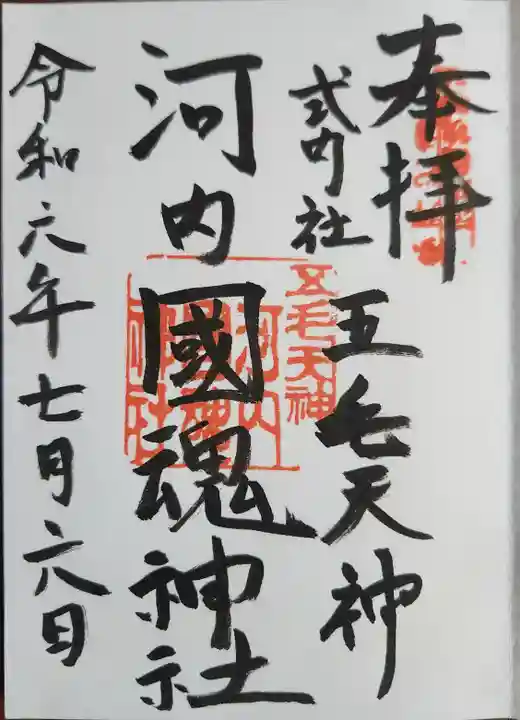 奉拝
式内社
五毛天神
河内國魂神社
令和六年七月六日
五毛天神
河内國魂神社